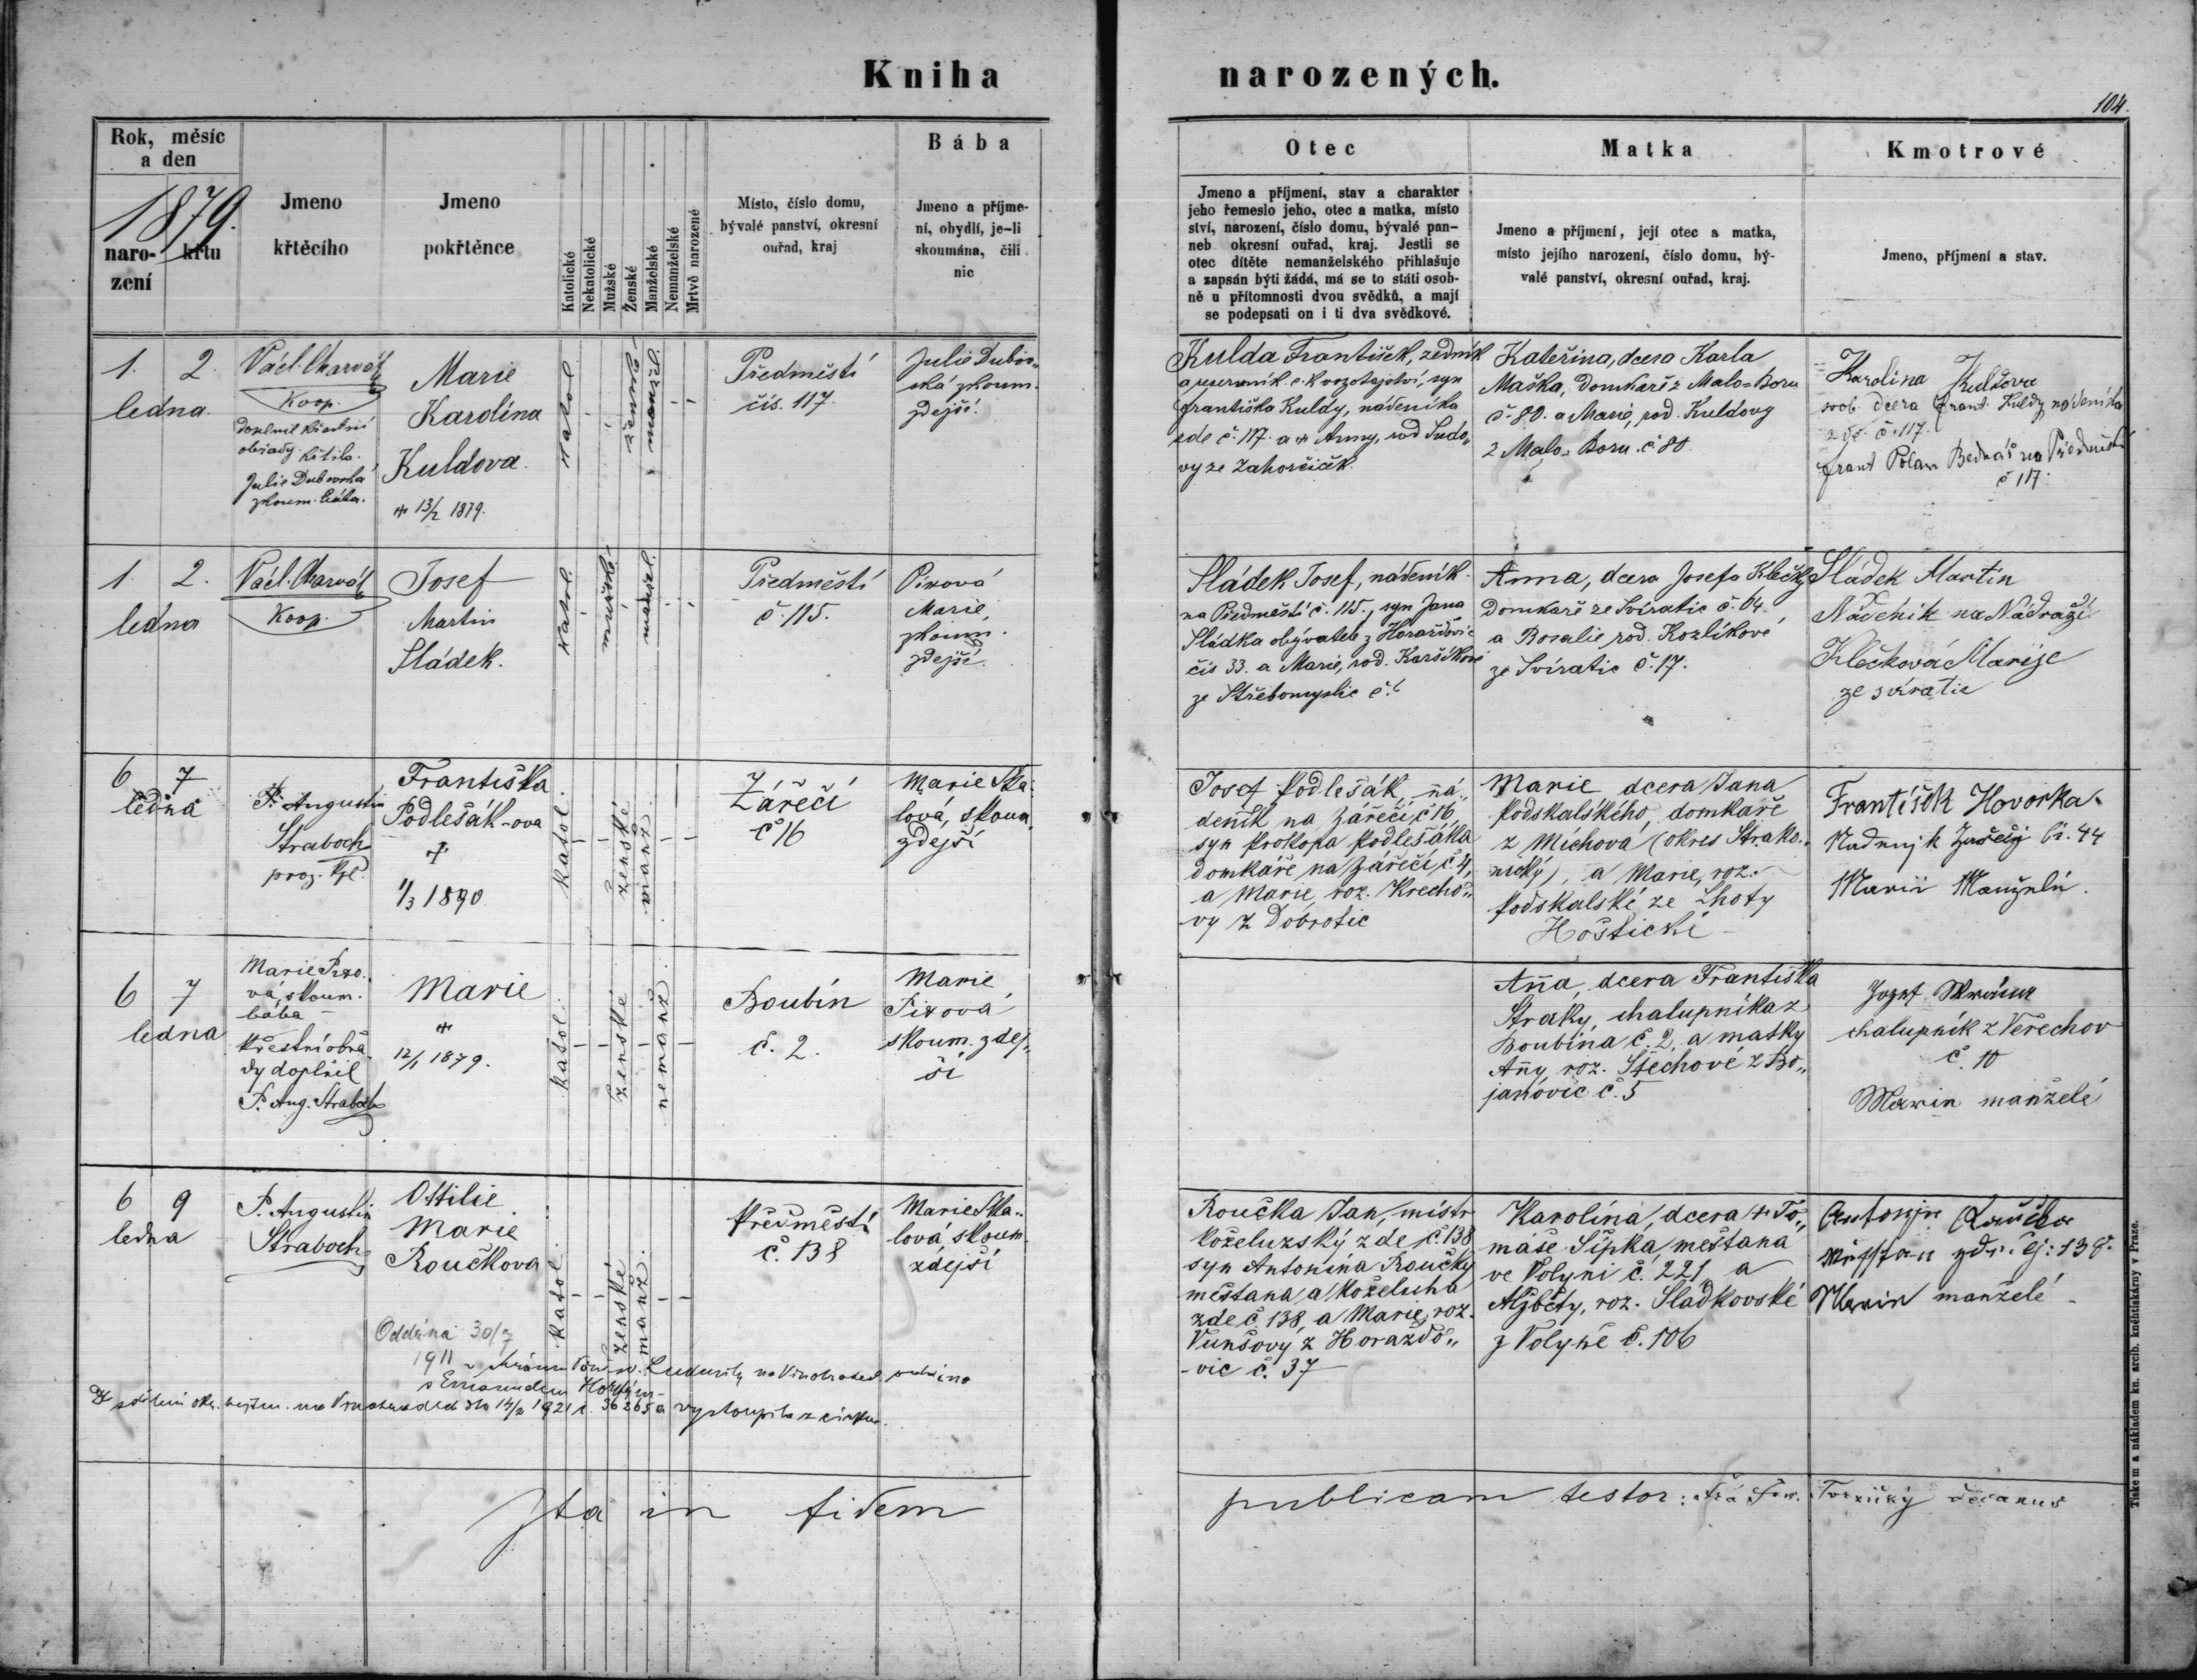 Kniha narozených.
104.
Rok, měsíc
a den
1879.
naro-
zení
křtu
Jmeno
křtěcího
Jmeno
pokřtěnce
Katolické
Nekatolické
Mužské
Ženské
Manželské
Nemanželské
Mrtvě narozené
Místo, číslo domu,
bývalé panství, okresní
ouřad, kraj
Bába
Jmeno a příjme-
ní, obydlí, je-li
skoumána, čili
nic
Otec
Jmeno a příjmení, stav a charakter
jeho řemeslo jeho, otec a matka, místo
ství, narození, číslo domu, bývalé pan-
neb okresní ouřad, kraj. Jestli se
otec dítěte nemanželského přihlašuje
a zapsán býti žádá, má se to státi osob-
ně u přítomnosti dvou svědků, a mají
se podepsati on i ti dva svědkové.
Matka
Jmeno a příjmení, její otec a matka,
místo jejího narození, číslo domu, bý-
valé panství, okresní ouřad, kraj.
Kmotrové
Jmeno, příjmení a stav.
1. 2.
ledna.
Václ. Charvát
Koop.
doplnil křestní
obřady křtila
Julie Dubovská
zkoum. bába.
Marie
Karolina
Kuldova.
+ 13/2 1879.
katol
ženské
manžel
Předměstí
čís. 117.
Julie Dubov„
ská zkoum.
zdejší.
Kulda František, zedník
syn
Františka Kuldy, nádeníka
zde č. 117. a + Anny, rod Sudo„
vy ze Zahorčiček.
Kateřina, dcera Karla
Maška, domkaře z Malo=Boru
č 80. a Marie, rod. Kuldovy
z Malo=Boru. č 80.
Karolina Kuldova
svob. dcera Frant. Kuldy nádeníka
zde č. 117.
Frant Polan Bednář na Předměstí
č 117.
1. 2.
ledna
Václ. Charvát
Koop.
Josef
Martin
Sládek.
katol.
mužské
manžel
Předměstí
č. 115.
Pixová
Marie
zkoum.
zdejší.
Sládek Josef, nádeník
na Předměstí č. 115., syn Jana
Sládka obývatele z Horažďovic
čís 33. a Marie, rod. Karšíkové
ze Střebomyslic č. 6
Anna, dcera Josefa Klečky
domkaře ze Svíratic č. 64.
a Rosalie rod. Kozlíkové
ze Svíratic č. 17.
Sládek Martin
Nádeník na Nádraží
Klečková Marije
ze svíratic
6 7
ledna
P. Augustin
Straboch
Františka
Podlešák-ova
+
1/3 1890
katol.
ženské
manž.
Zářečí
č 16
Marie Ska-
lová, skoum.
zdejší
Josef Podlešák, ná„
deník na Zářečí č 16,
syn Prokopa Podlešáka
domkáře na Zářečí č 4,
a Marie, roz. Krecho„
vy z Dobrotic
Marie dcera Jana
Podskalského, domkaře
z Míchova (okres Strako„
nický), a Marie, roz.
Podskalské ze Lhoty
Hoštické
František Hovorka
44
6 7
ledna
Marie Pixo„
vá, skoum.
bába
křestní obřa
dy doplnil
P. Aug. Straboch
Marie
+
12/1 1879.
katol.
ženské
nemanž.
Boubín
č. 2.
Marie
Pixová
skoum. zdej„
ší
Anna, dcera Františka
Straky, chalupníka z
Boubína č. 2, a matky
Anny, roz. Stěchové z Bo„
janovic č. 5
Jozef
chalupník z Veřechov
č. 10
manželé
6 9
ledna
P. Augustin
Straboch
Ottilie
Marie
Roučkova
katol.
ženské
manž.
Předměstí
č. 138
Marie Ska„
lová, skoum.
zdejší
Roučka Jan, mistr
koželuzský zde č. 138
syn Antonína Roučky
měštana a koželuha
zde č. 138, a Marie, roz.
Vunšový z Horažďo„
vic č. 37
Karolína, dcera + To„
máše Šípka, měštana
ve Volyni č. 221, a
Alžběty, roz. Sladkovské
z Volyně č. 106
Antonjn Raučka
138.
manželé
Oddána 30/7
1911 v Ludmily na Vinohradech
1921 č. 36265 vystoupila z církve.
Ita in fidem publicam testor: děcanus
Tiskem a nákladem kn. arcib. kněhtiskárny v Praze.